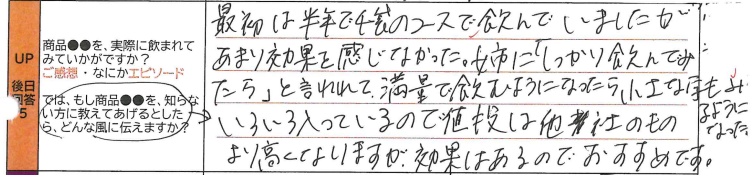 UP
後日
回答
5
商品●●を、実際に飲まれて
みていかがですか?
ご感想・なにかエピソード
では、もし商品●●を、知らな
い方に教えてあげるとした
ら、どんな風に伝えますか?
最初は半年で1袋のコースで飲んでいましたが
あまり効果を感じてなかった。姉に「しっかり飲んでみ
たら」と言われて、満量で飲むようになったら小さな字もよみ
るように
なった。
いろいろ入っているので値段は他社のもの
より高くなりますが、効果はあるのでおすすめです。